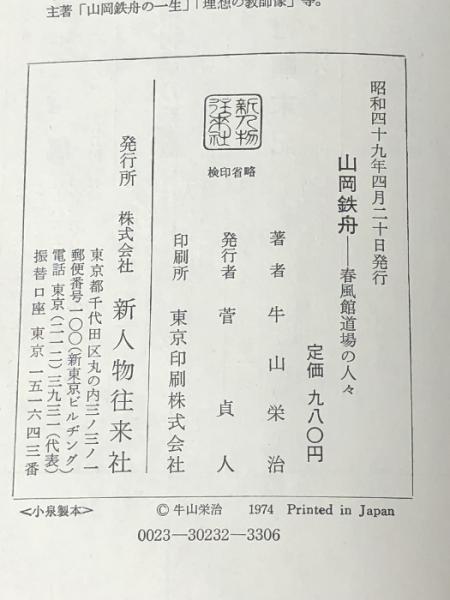 主著「山岡鉄舟の一生」「理想の教師像」等。
昭和四十九年四月二十日発行
山岡鉄舟——春風館道場の人々
定価 九八〇円
著者 牛山栄治
発行者 菅貞人
印刷所 東京印刷株式会社
新人物往来社
検印省略
発行所 株式会社 新人物往来社
東京都千代田区丸の内三ノ三ノ一
郵便番号一〇〇(新東京ビルヂング)
電話 東京(二一二)三九三一(代表)
振替口座 東京 一五一六四三番
<小泉製本>
© 牛山栄治 1974 Printed in Japan
0023—30232—3306